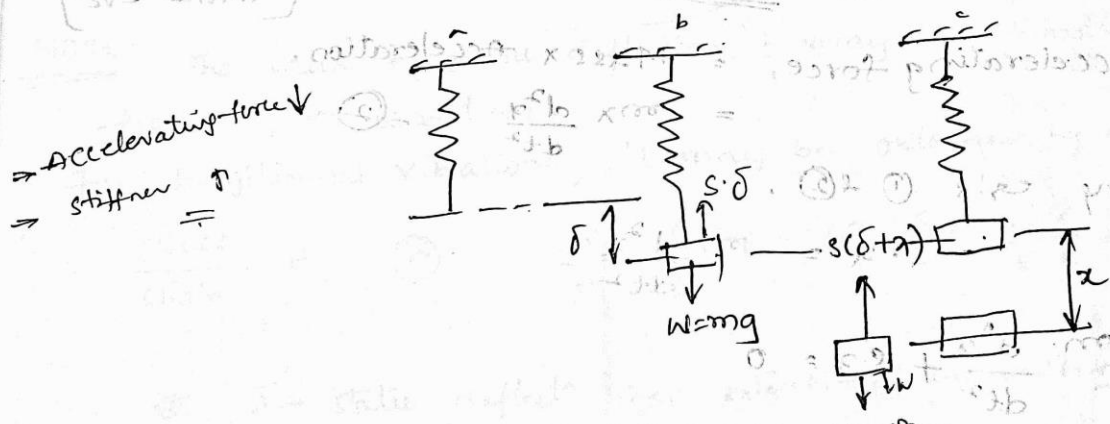 a
b
c
⇒ Accelerating force ↓
⇒ stiffner ↑
δ
s·δ
W=mg
s(δ+x)
x
W